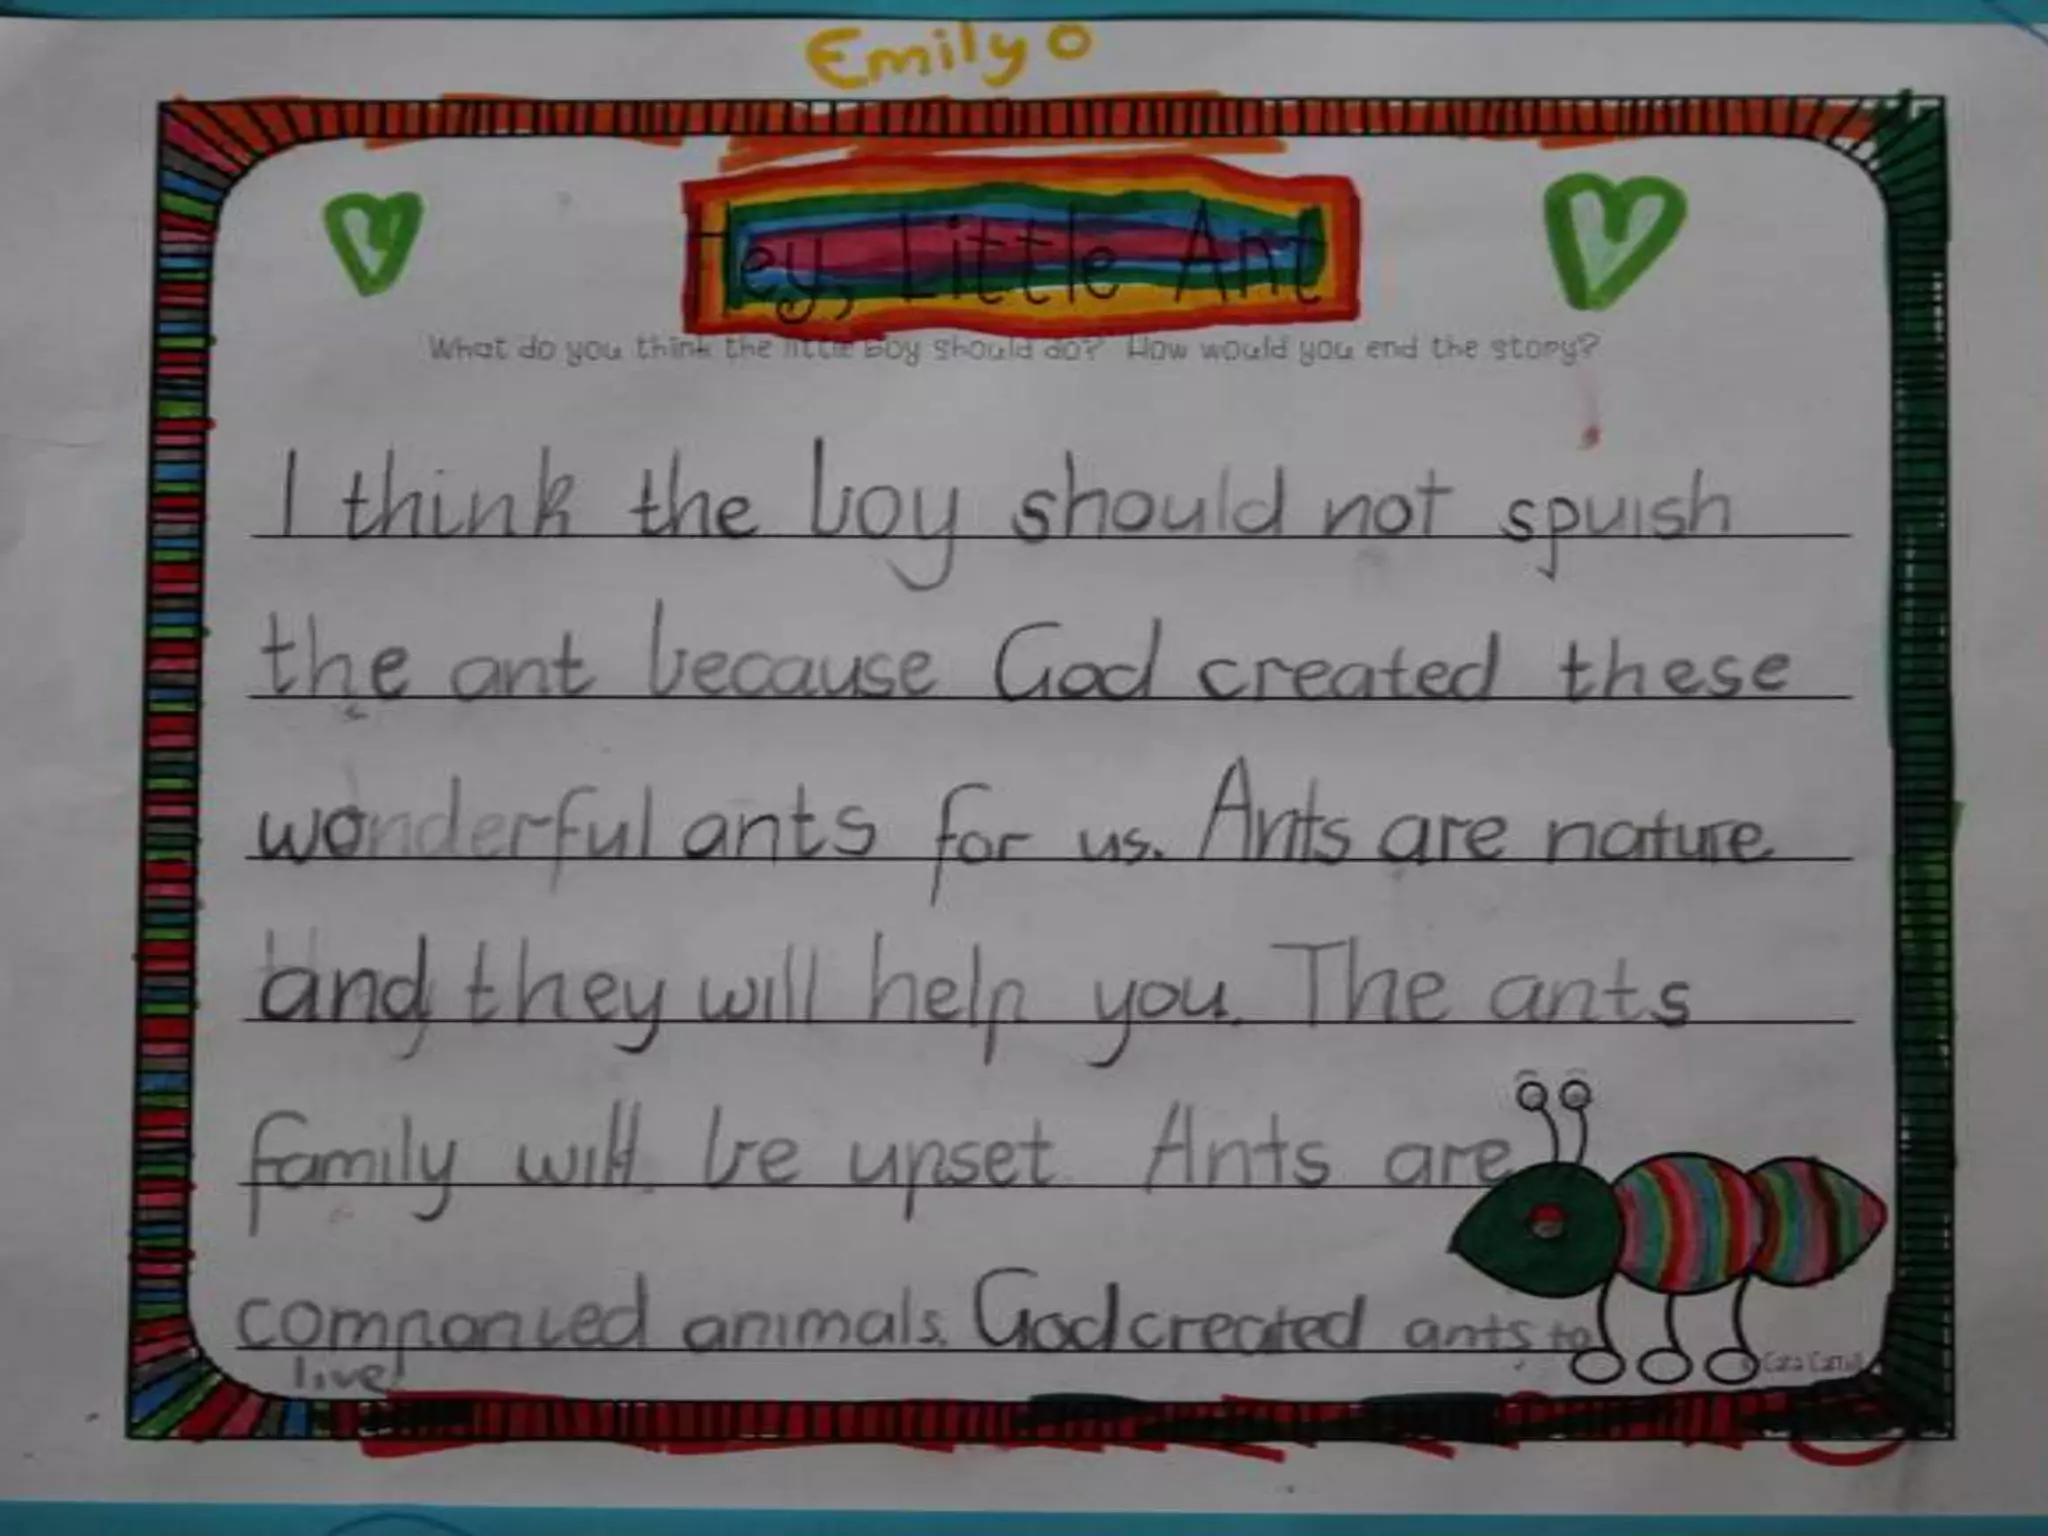 Emily O
Hey, Little Ant
What do you think the little boy should do? How would you end the story?
I think the boy should not spuish
the ant because God created these
wonderful ants for us. Ants are nature
and they will help you. The ants
family will be upset. Ants are
companied animals. God created ants to
live!